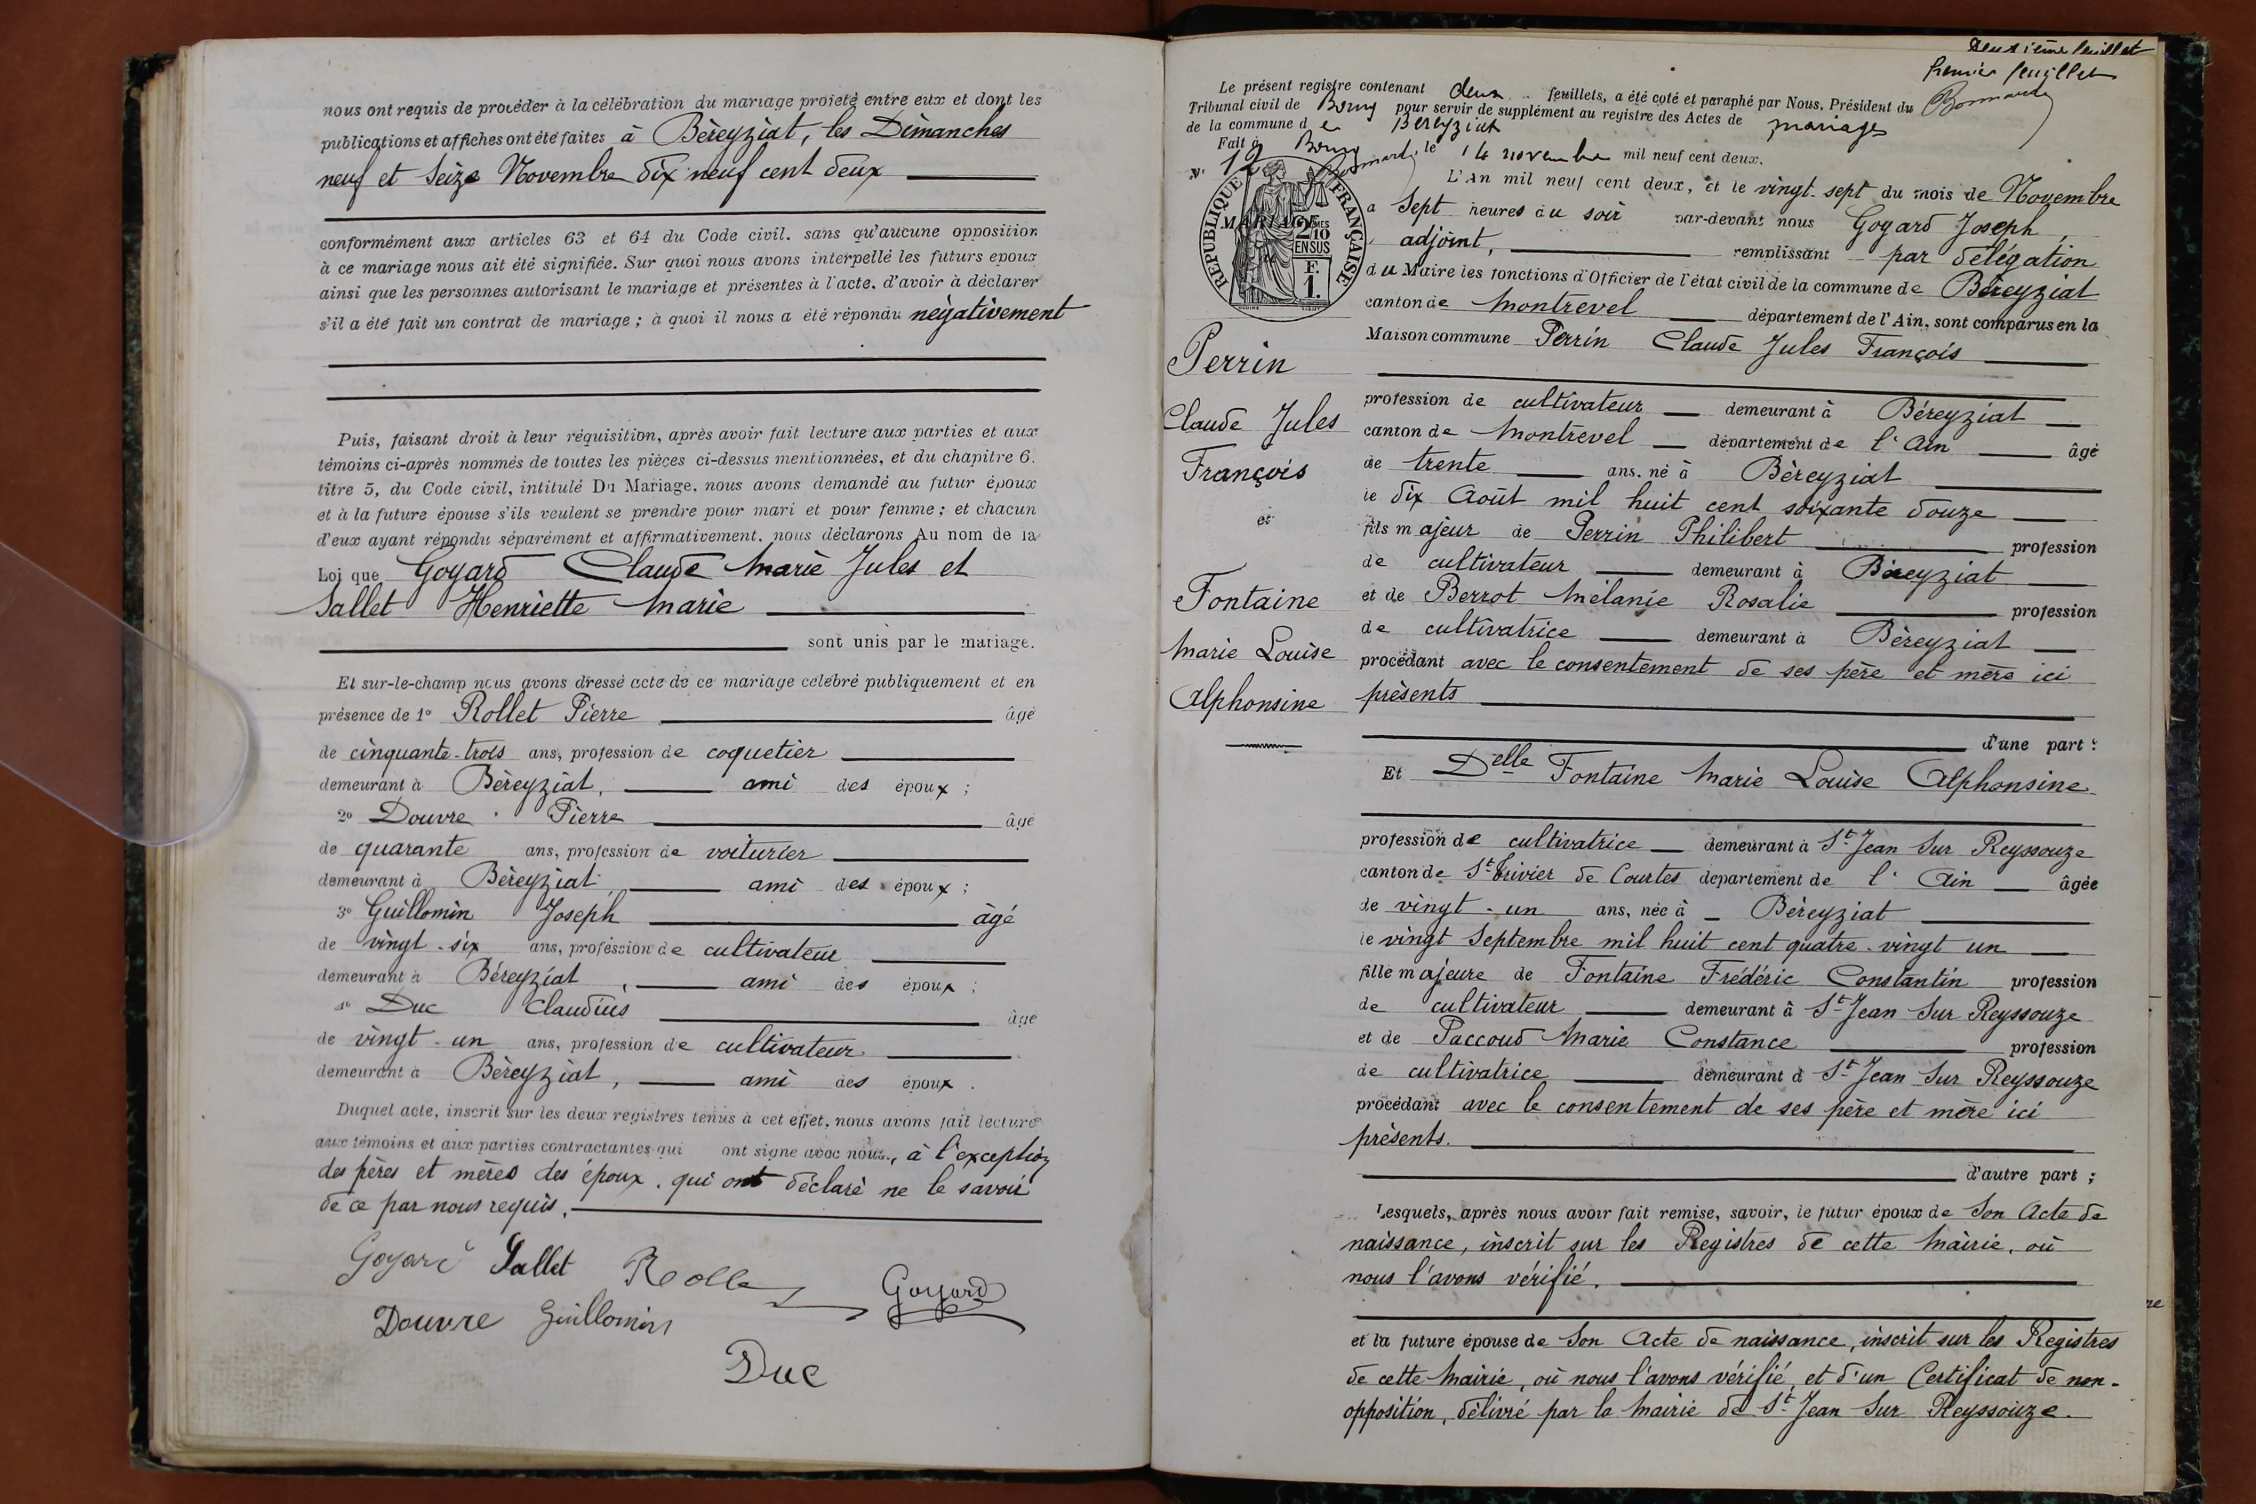 nous ont requis de procéder à la célébration du mariage projeté entre eux et dont les
publications et affiches ont été faites à Béreyziat, les Dimanches
neuf et Seize Novembre dix neuf cent deux
conformément aux articles 63 et 64 du Code civil, sans qu'aucune opposition
à ce mariage nous ait été signifiée. Sur quoi nous avons interpellé les futurs époux
ainsi que les personnes autorisant le mariage et présentes à l'acte, d'avoir à déclarer
s'il a été fait un contrat de mariage ; à quoi il nous a été répondu négativement
Puis, faisant droit à leur réquisition, après avoir fait lecture aux parties et aux
témoins ci-après nommés de toutes les pièces ci-dessus mentionnées, et du chapitre 6.
titre 5, du Code civil, intitulé Du Mariage, nous avons demandé au futur époux
et à la future épouse s'ils veulent se prendre pour mari et pour femme ; et chacun
d'eux ayant répondu séparément et affirmativement, nous déclarons Au nom de la
Loi que Goyard Claude Marie Jules et
Sallet Henriette Marie
sont unis par le mariage.
Et sur-le-champ nous avons dressé acte de ce mariage célébré publiquement et en
présence de 1º Rollet Pierre âgé
de cinquante-trois ans, profession de coquetier
demeurant à Béreyziat, ami des époux ;
2º Douvre Pierre âgé
de quarante ans, profession de voiturier
demeurant à Béreyziat, ami des époux ;
3º Guillomin Joseph âgé
de vingt-six ans, profession de cultivateur
demeurant à Béreyziat, ami des époux ;
4º Duc Claudius âgé
de vingt-un ans, profession de cultivateur
demeurant à Béreyziat, ami des époux.
Duquel acte, inscrit sur les deux registres tenus à cet effet, nous avons fait lecture
aux témoins et aux parties contractantes qui ont signé avec nous, à l'exception
des pères et mères des époux, qui ont déclaré ne le savoir
de ce par nous requis.
Goyard Sallet Rollet Goyard
Douvre Guillomin
Duc
Deuxième feuillet
premier feuillet
Le présent registre contenant deux feuillets, a été coté et paraphé par Nous, Président du
Tribunal civil de Bourg pour servir de supplément au registre des Actes de mariages
de la commune de Béreyziat
Fait à Bourg le 14 novembre mil neuf cent deux.
Nº 12
RÉPUBLIQUE FRANÇAISE
MARIAGE
2/10 EN SUS
F. 1.
L'An mil neuf cent deux, et le vingt-sept du mois de Novembre
a Sept heures du soir par-devant nous Goyard Joseph,
adjoint, remplissant par délégation
du Maire les fonctions d'Officier de l'état civil de la commune de Béreyziat
canton de Montrevel département de l'Ain, sont comparus en la
Maison commune Perrin Claude Jules François
profession de cultivateur demeurant à Béreyziat
canton de Montrevel département de l'Ain âgé
de trente ans, né à Béreyziat
le dix Août mil huit cent soixante douze
fils majeur de Perrin Philibert profession
de cultivateur demeurant à Béreyziat
et de Berrot Mélanie Rosalie profession
de cultivatrice demeurant à Béreyziat
procédant avec le consentement de ses père et mère ici
présents
d'une part :
Perrin
Claude Jules
François
et
Fontaine
Marie Louise
Alphonsine
Et Delle Fontaine Marie Louise Alphonsine
profession de cultivatrice demeurant à St Jean Sur Reyssouze
canton de St Trivier de Courtes département de l'Ain âgée
de vingt-un ans, née à Béreyziat
le vingt Septembre mil huit cent quatre-vingt un
fille majeure de Fontaine Frédéric Constantin profession
de cultivateur demeurant à St Jean Sur Reyssouze
et de Paccoud Marie Constance profession
de cultivatrice demeurant à St Jean Sur Reyssouze
procédant avec le consentement de ses père et mère ici
présents.
d'autre part ;
Lesquels, après nous avoir fait remise, savoir, le futur époux de Son Acte de
naissance, inscrit sur les Registres de cette Mairie, où
nous l'avons vérifié.
et la future épouse de Son Acte de naissance, inscrit sur les Registres
de cette Mairie, où nous l'avons vérifié, et d'un Certificat de non-
opposition, délivré par la Mairie de St Jean Sur Reyssouze.